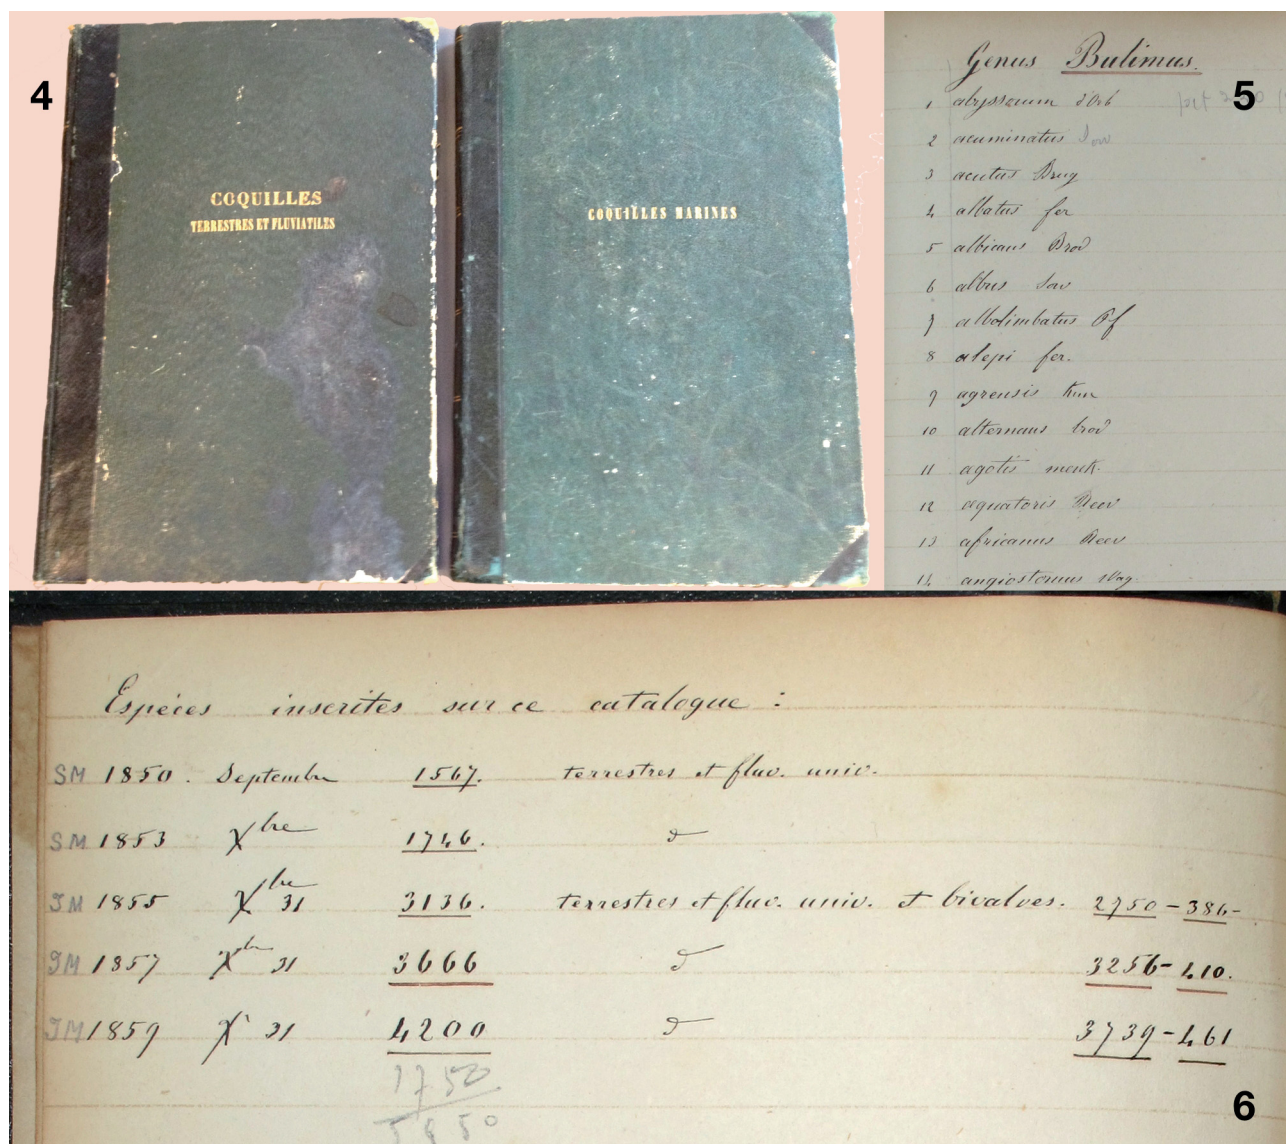 4
COQUILLES
TERRESTRES ET FLUVIATILES
COQUILLES MARINES
5
Genus Bulimus.
1 abyssorum d'Orb
2 acuminatus Sow
3 acutus Brug
4 albatus fer
5 albicans Brod
6 albus Sow
7 albolimbatus Pf
8 alepi fer.
9 agrensis Kur
10 alternans brod
11 agotis menk.
12 aquatoris Reev
13 africanus Reev
14 angiostomus Wag.
Espéces inscrites sur ce catalogue :
SM 1850. Septembre 1567. terrestres et fluv. univ.
SM 1853 Xbre 1746. d
JM 1855 Xbre 31 3136. terrestres et fluv. univ. et bivalves. 2750 - 386 -
JM 1857 Xbre 31 3666 d 3256 - 410.
JM 1859 X 31 4200 d 3739 - 461
1750
5850
6